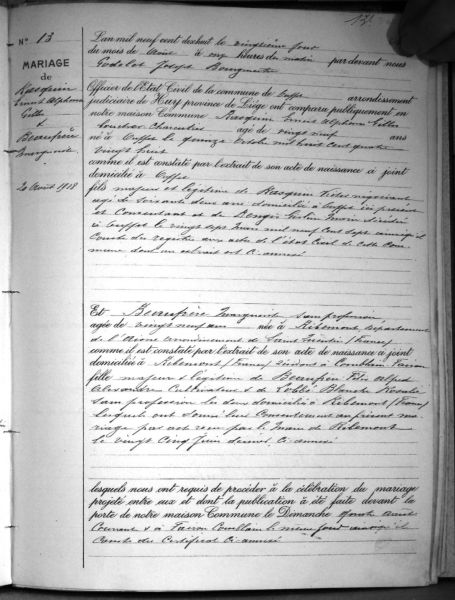 13
N° 13
MARIAGE
de
Rasquin
Ernest Alphonse
Gilles
et
Beaufrère
Marguerite
20 Août 1918
L'an mil neuf cent dix huit le vingtième jour
du mois de Août à onze heures du matin par devant nous
Godelet Joseph
Officier de l'Etat Civil de la commune de Ouffet arrondissement
judiciaire de Huy province de Liége ont comparu publiquement en
notre maison Commune Rasquin Ernest Alphonse Gilles
âgé de vingt neuf ans
né à Ouffet le quinze Octobre mil huit cent quatre
vingt huit
comme il est constaté par l'extrait de son acte de naissance ci joint
domicilié à Ouffet
fils majeur et légitime de Rasquin négociant
âgé de soixante deux ans domicilié à Ouffet ici présent
et consentant et de décédée
à Ouffet le vingt sept Mars mil neuf cent sept ainsi qu'il
Conste du registre aux actes de l'état Civil de cette Com
mune dont un extrait est ci-annexé
Et Beaufrère Marguerite sans profession
agée de vingt neuf ans née à Ribemont département
de l'Aisne arrondissement de Saint Quentin (France)
comme il est constaté par l'extrait de son acte de naissance ci joint
domiciliée à Ribemont (France) résidant à Comblain Fairon
fille majeure et légitime de Beaufrère Alfred
Cultivateur et de Blanche
sans profession les deux domiciliés à Ribemont (France)
lesquels ont donné leur consentement au présent ma
riage par acte reçu par le Maire de Ribemont
le vingt Cinq Juin dernier ci-annexé
lesquels nous ont requis de procéder à la célébration du mariage
projeté entre eux et dont la publication a été faite devant la
porte de notre maison Commune le Dimanche onze Août
Courant et à Fairon Comblain le même jour ainsi qu'il
Conste du Certificat ci-annexé